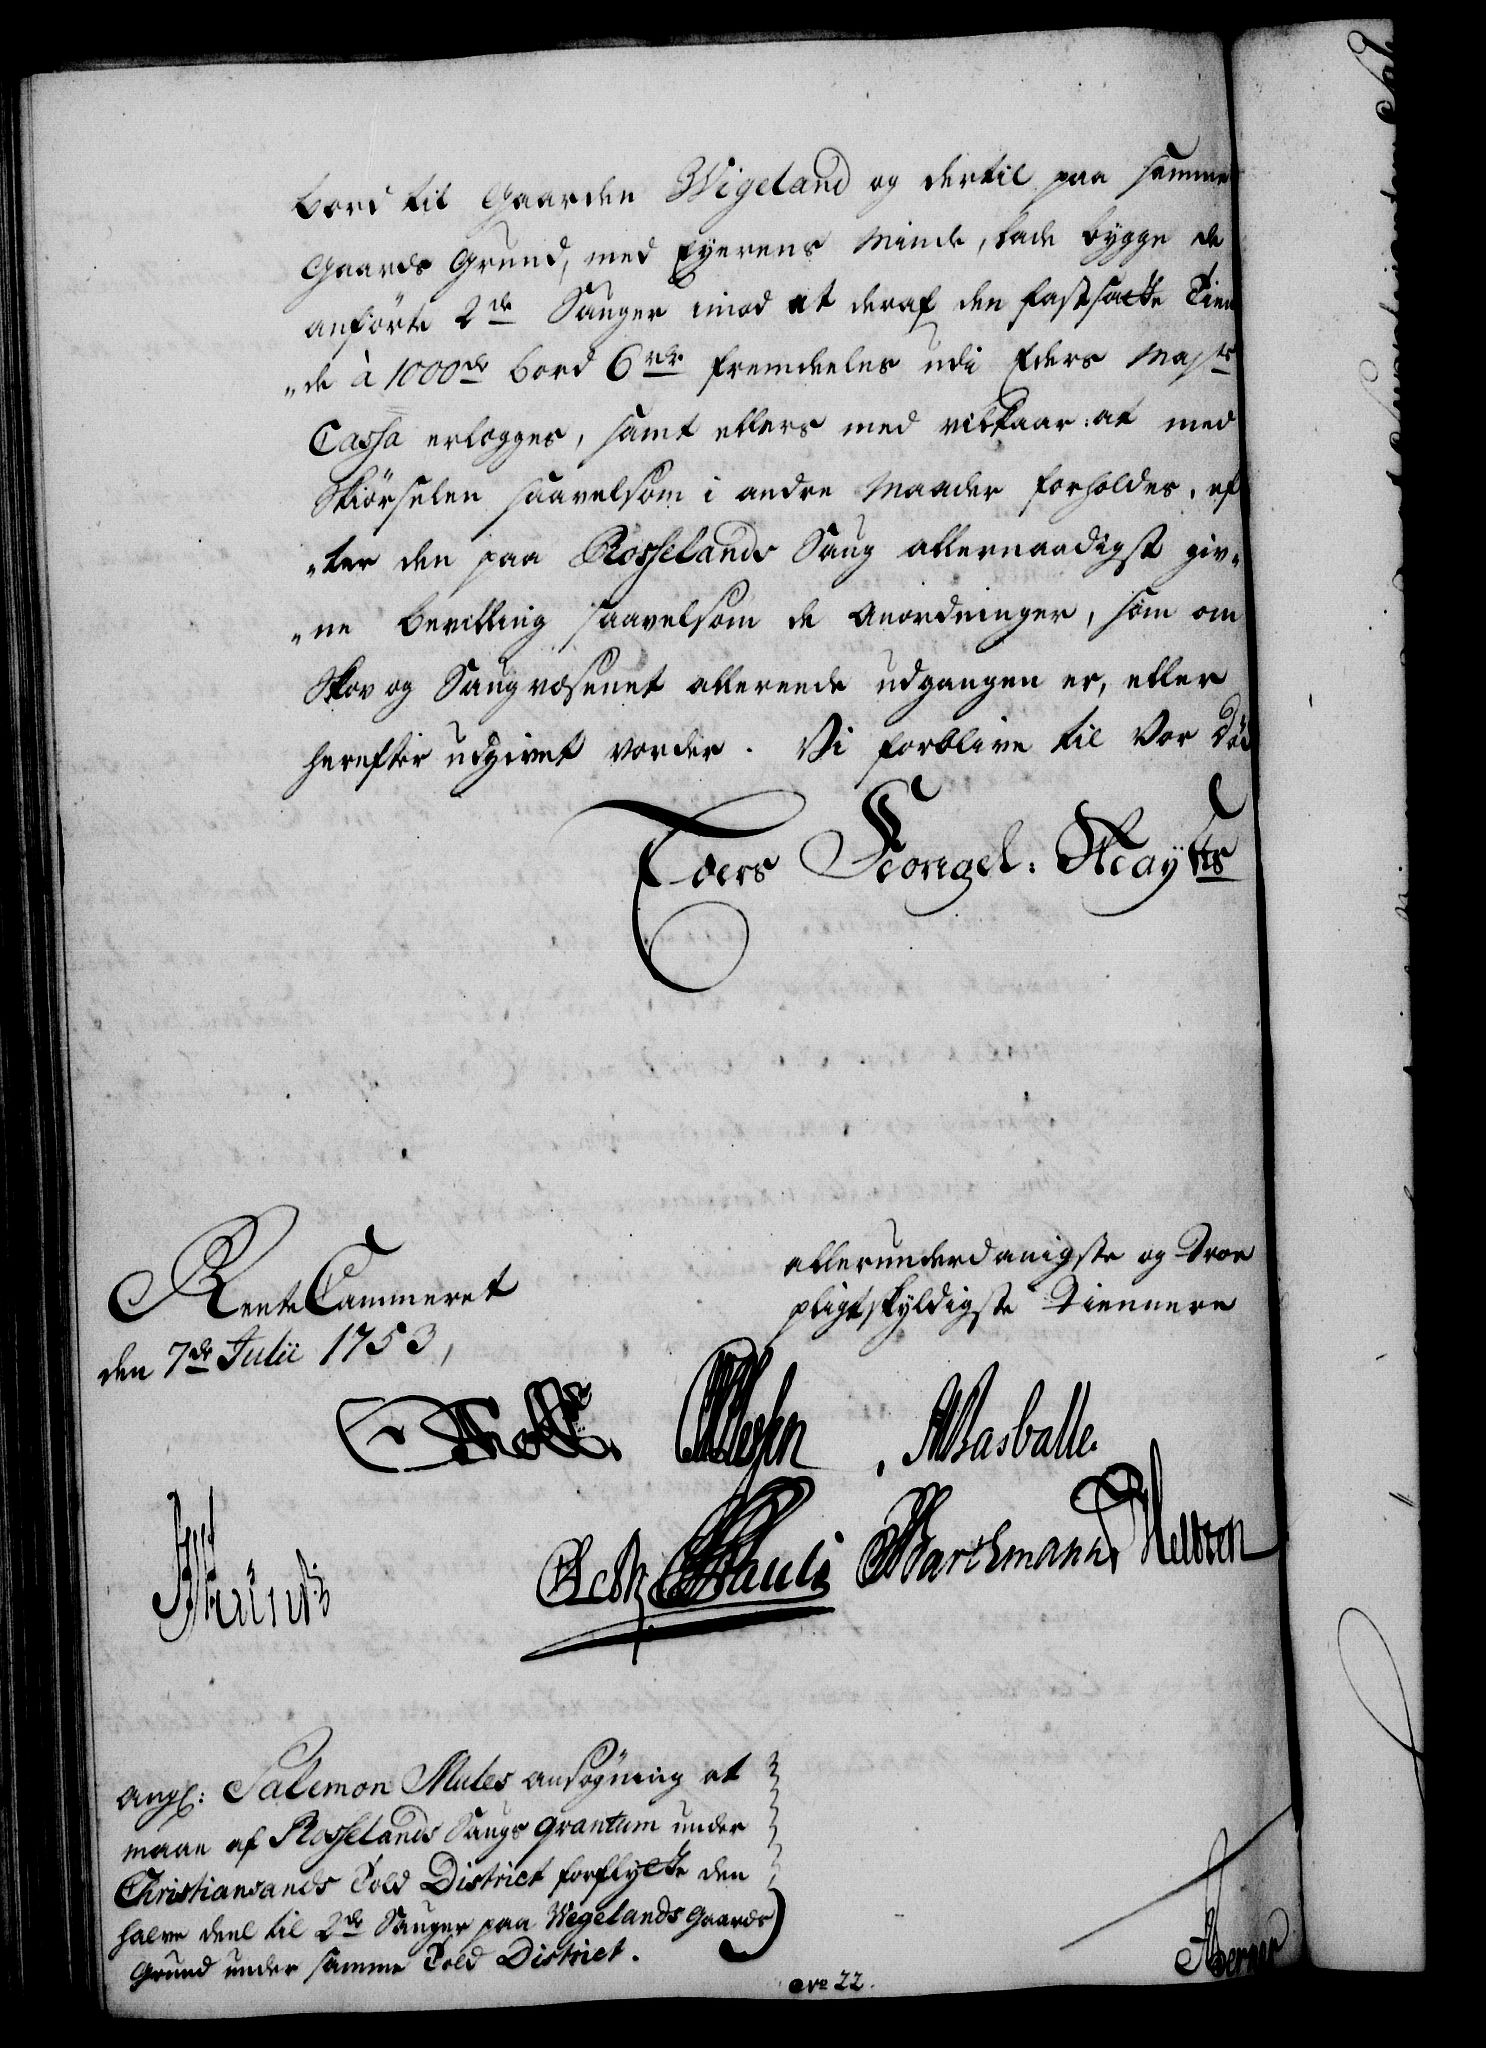 bord til Gaarden Wigeland og dertil paa samme
Gaards Grund, med Eyerens Minde, lade bygge de
anförte 2de Sauger imod at deraf den fastsatte Tien
"de à 1000de bord 6 rdr fremdeeles udi Eders Mayts
Cassa erlægges, samt ellers med vilkaar: at med
Skiörselen saavelsom i andre Maader forholdes, ef
"ter den paa Rosselands Saug allernaadigst giv"
"ne bevilling saavelsom de Anordninger, som om
Skov og Saugvæsenet allereede udgangen er, eller
herefter udgivet vorder. Vi forblive til Vor Död
Eders Kongel: Mayts
allerunderdanigste og Troe
pligtskyldigste Tiennere
RenteCammeret
den 7de Julii 1753,
Holst. ABasballe.
Pauli Barchmann,
Angl: Salemon Mules ansøgning at
maae af Rosselands Saugs qvantum under
Christiansands Told District forflytte den
halve deel til 2de Sauger paa Wegelands Gaards
Grund under samme Told District.
No 22.